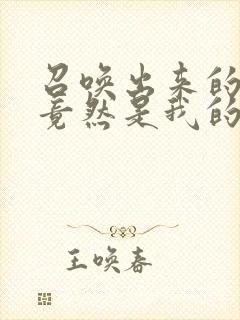 召唤出来的
竟然是我的
王唤春